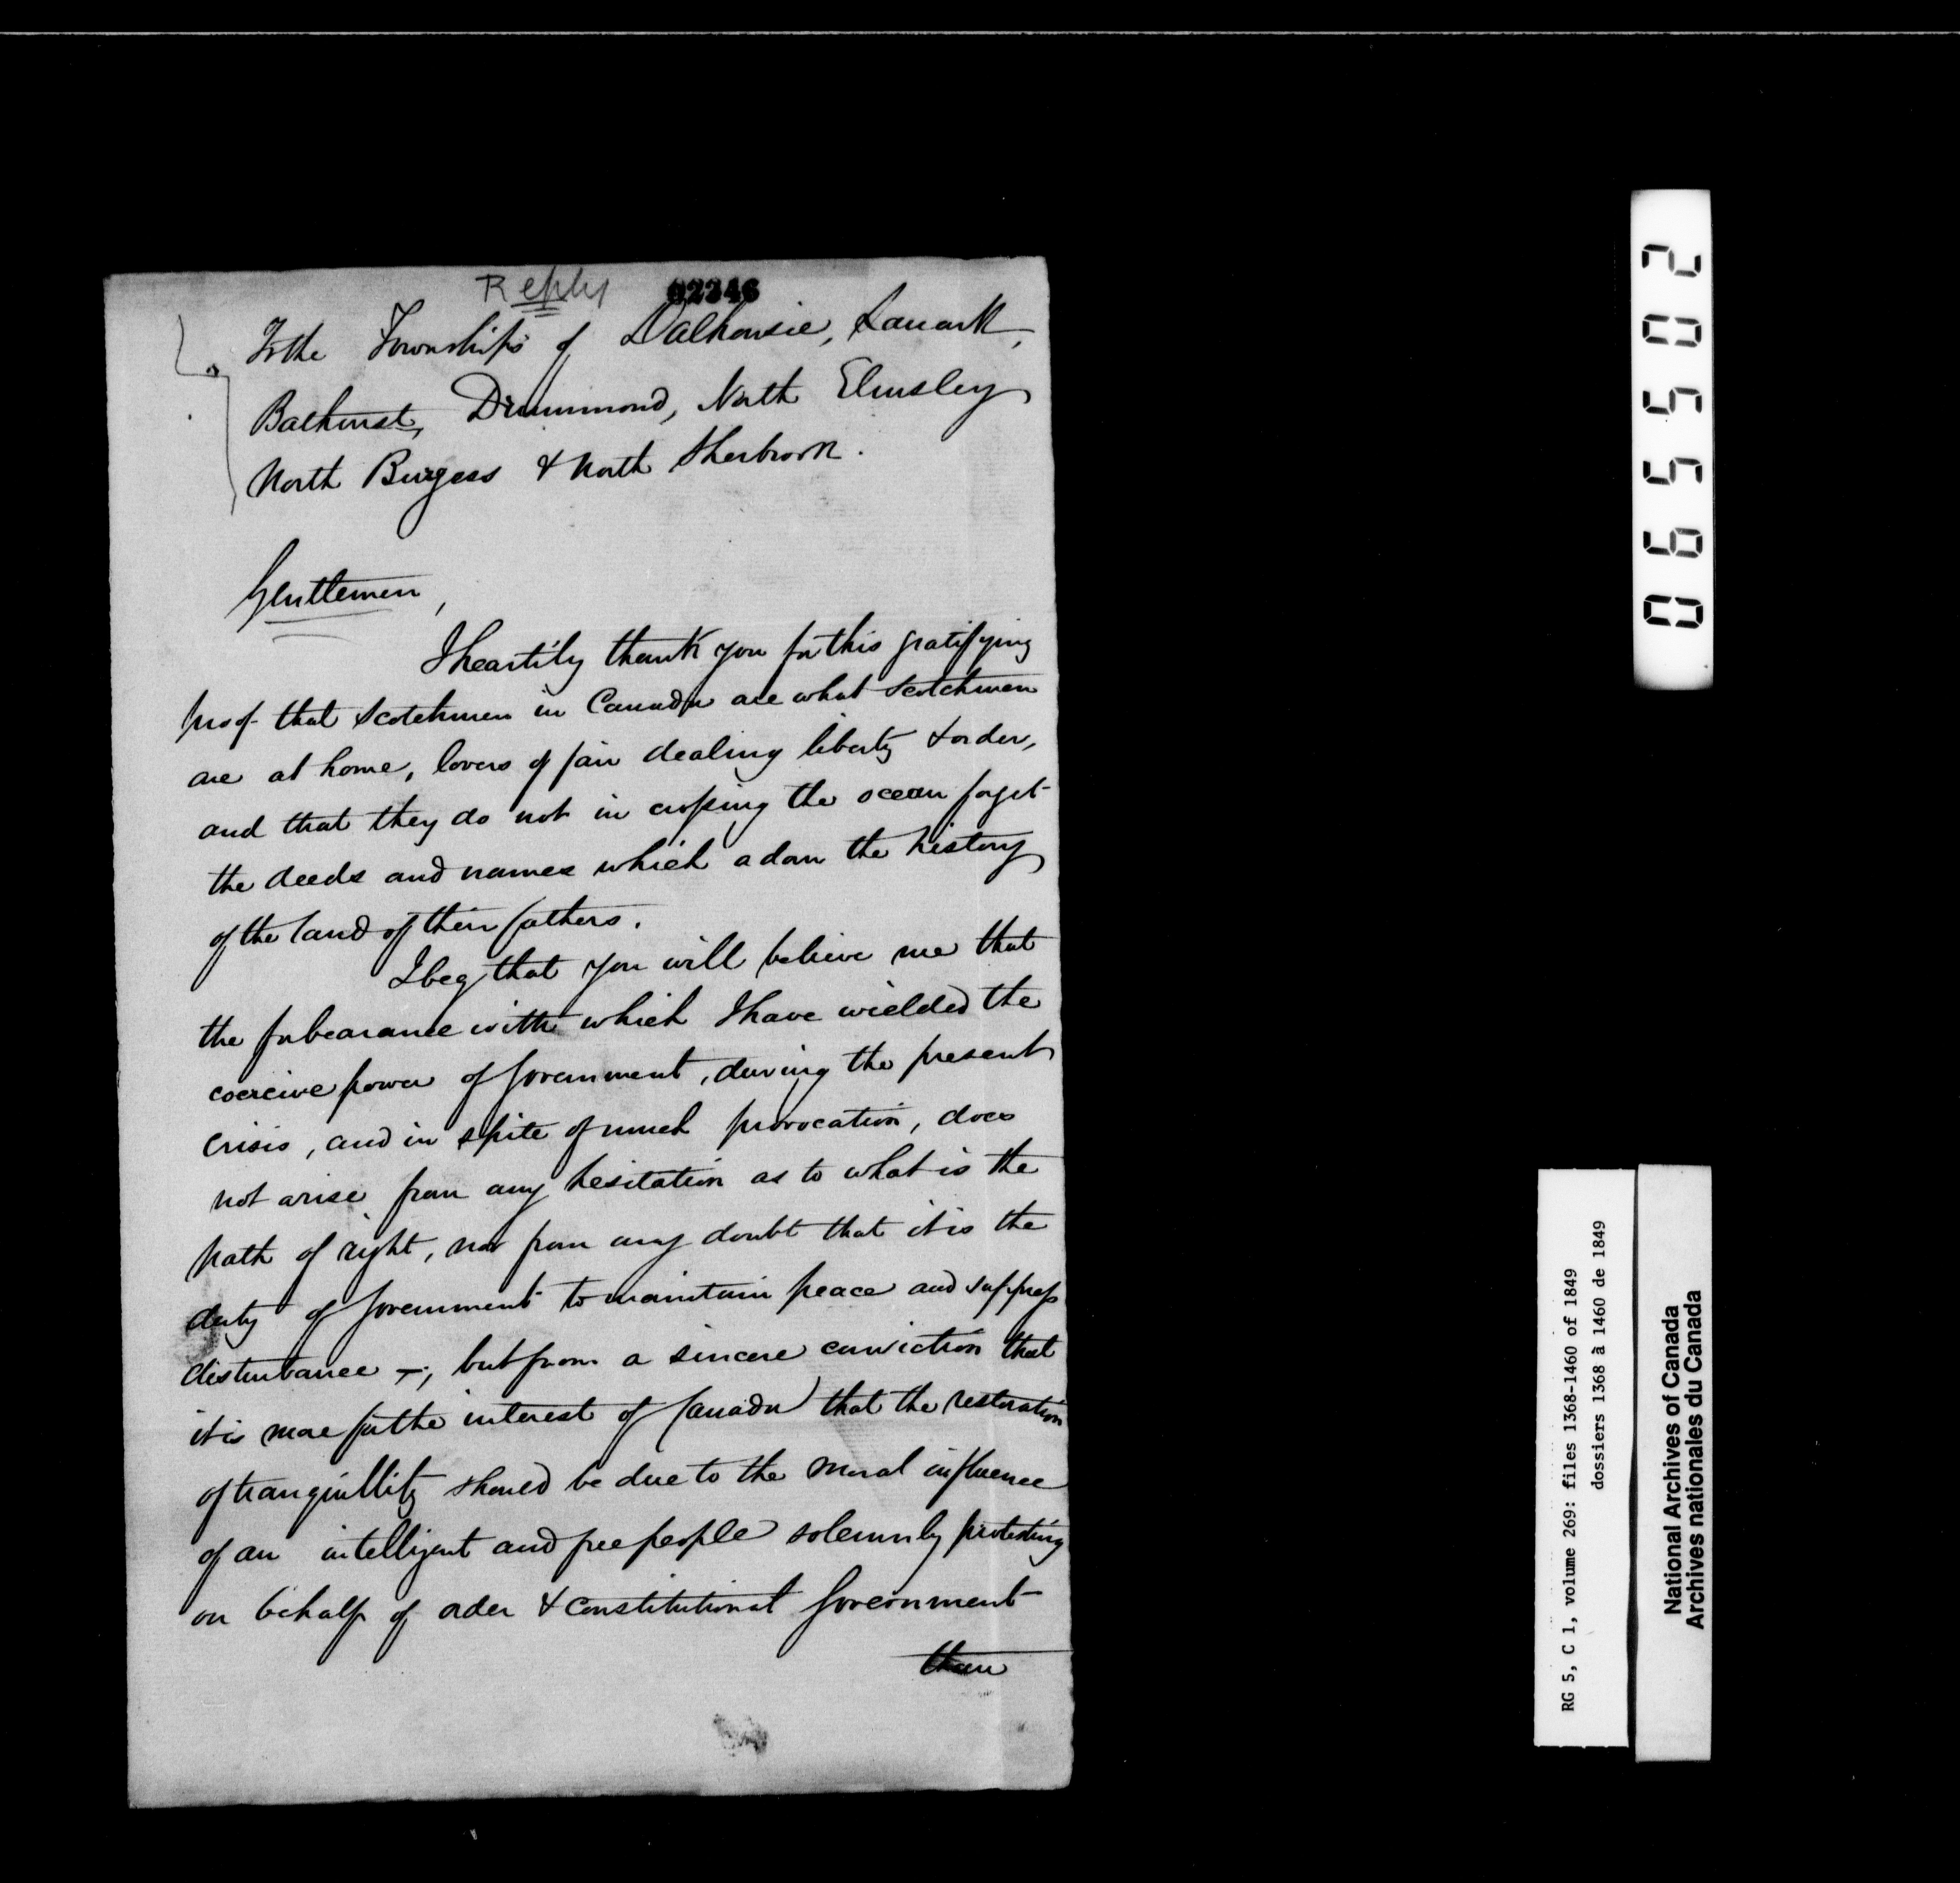 Reply
02346
To the Townships of Dalhousie, Lanark,
Bathurst, Drummond, North Elmsley
North Burgess & North Sherbrook.
Gentlemen,
I heartily thank you for this gratifying
proof that Scotchmen in Canada are what Scotchmen
are at home, lovers of fair dealing liberty & order,
and that they do not in crossing the ocean forget
the deeds and names which adorn the history
of the land of their fathers.
I beg that you will believe me that
the forbearance with which I have wielded the
coercive power of Government, during the present
crisis, and in spite of much provocation, does
not arise from any hesitation as to what is the
path of right, nor from any doubt that it is the
duty of Government to maintain peace and suppress
disturbance —; but from a sincere conviction that
it is more for the interest of Canada that the restoration
of tranquillity should be due to the moral influence
of an intelligent and free people solemnly protesting
on behalf of order & constitutional Government
than
065502
RG 5, C 1, volume 269: files 1368-1460 of 1849
dossiers 1368 à 1460 de 1849
National Archives of Canada
Archives nationales du Canada